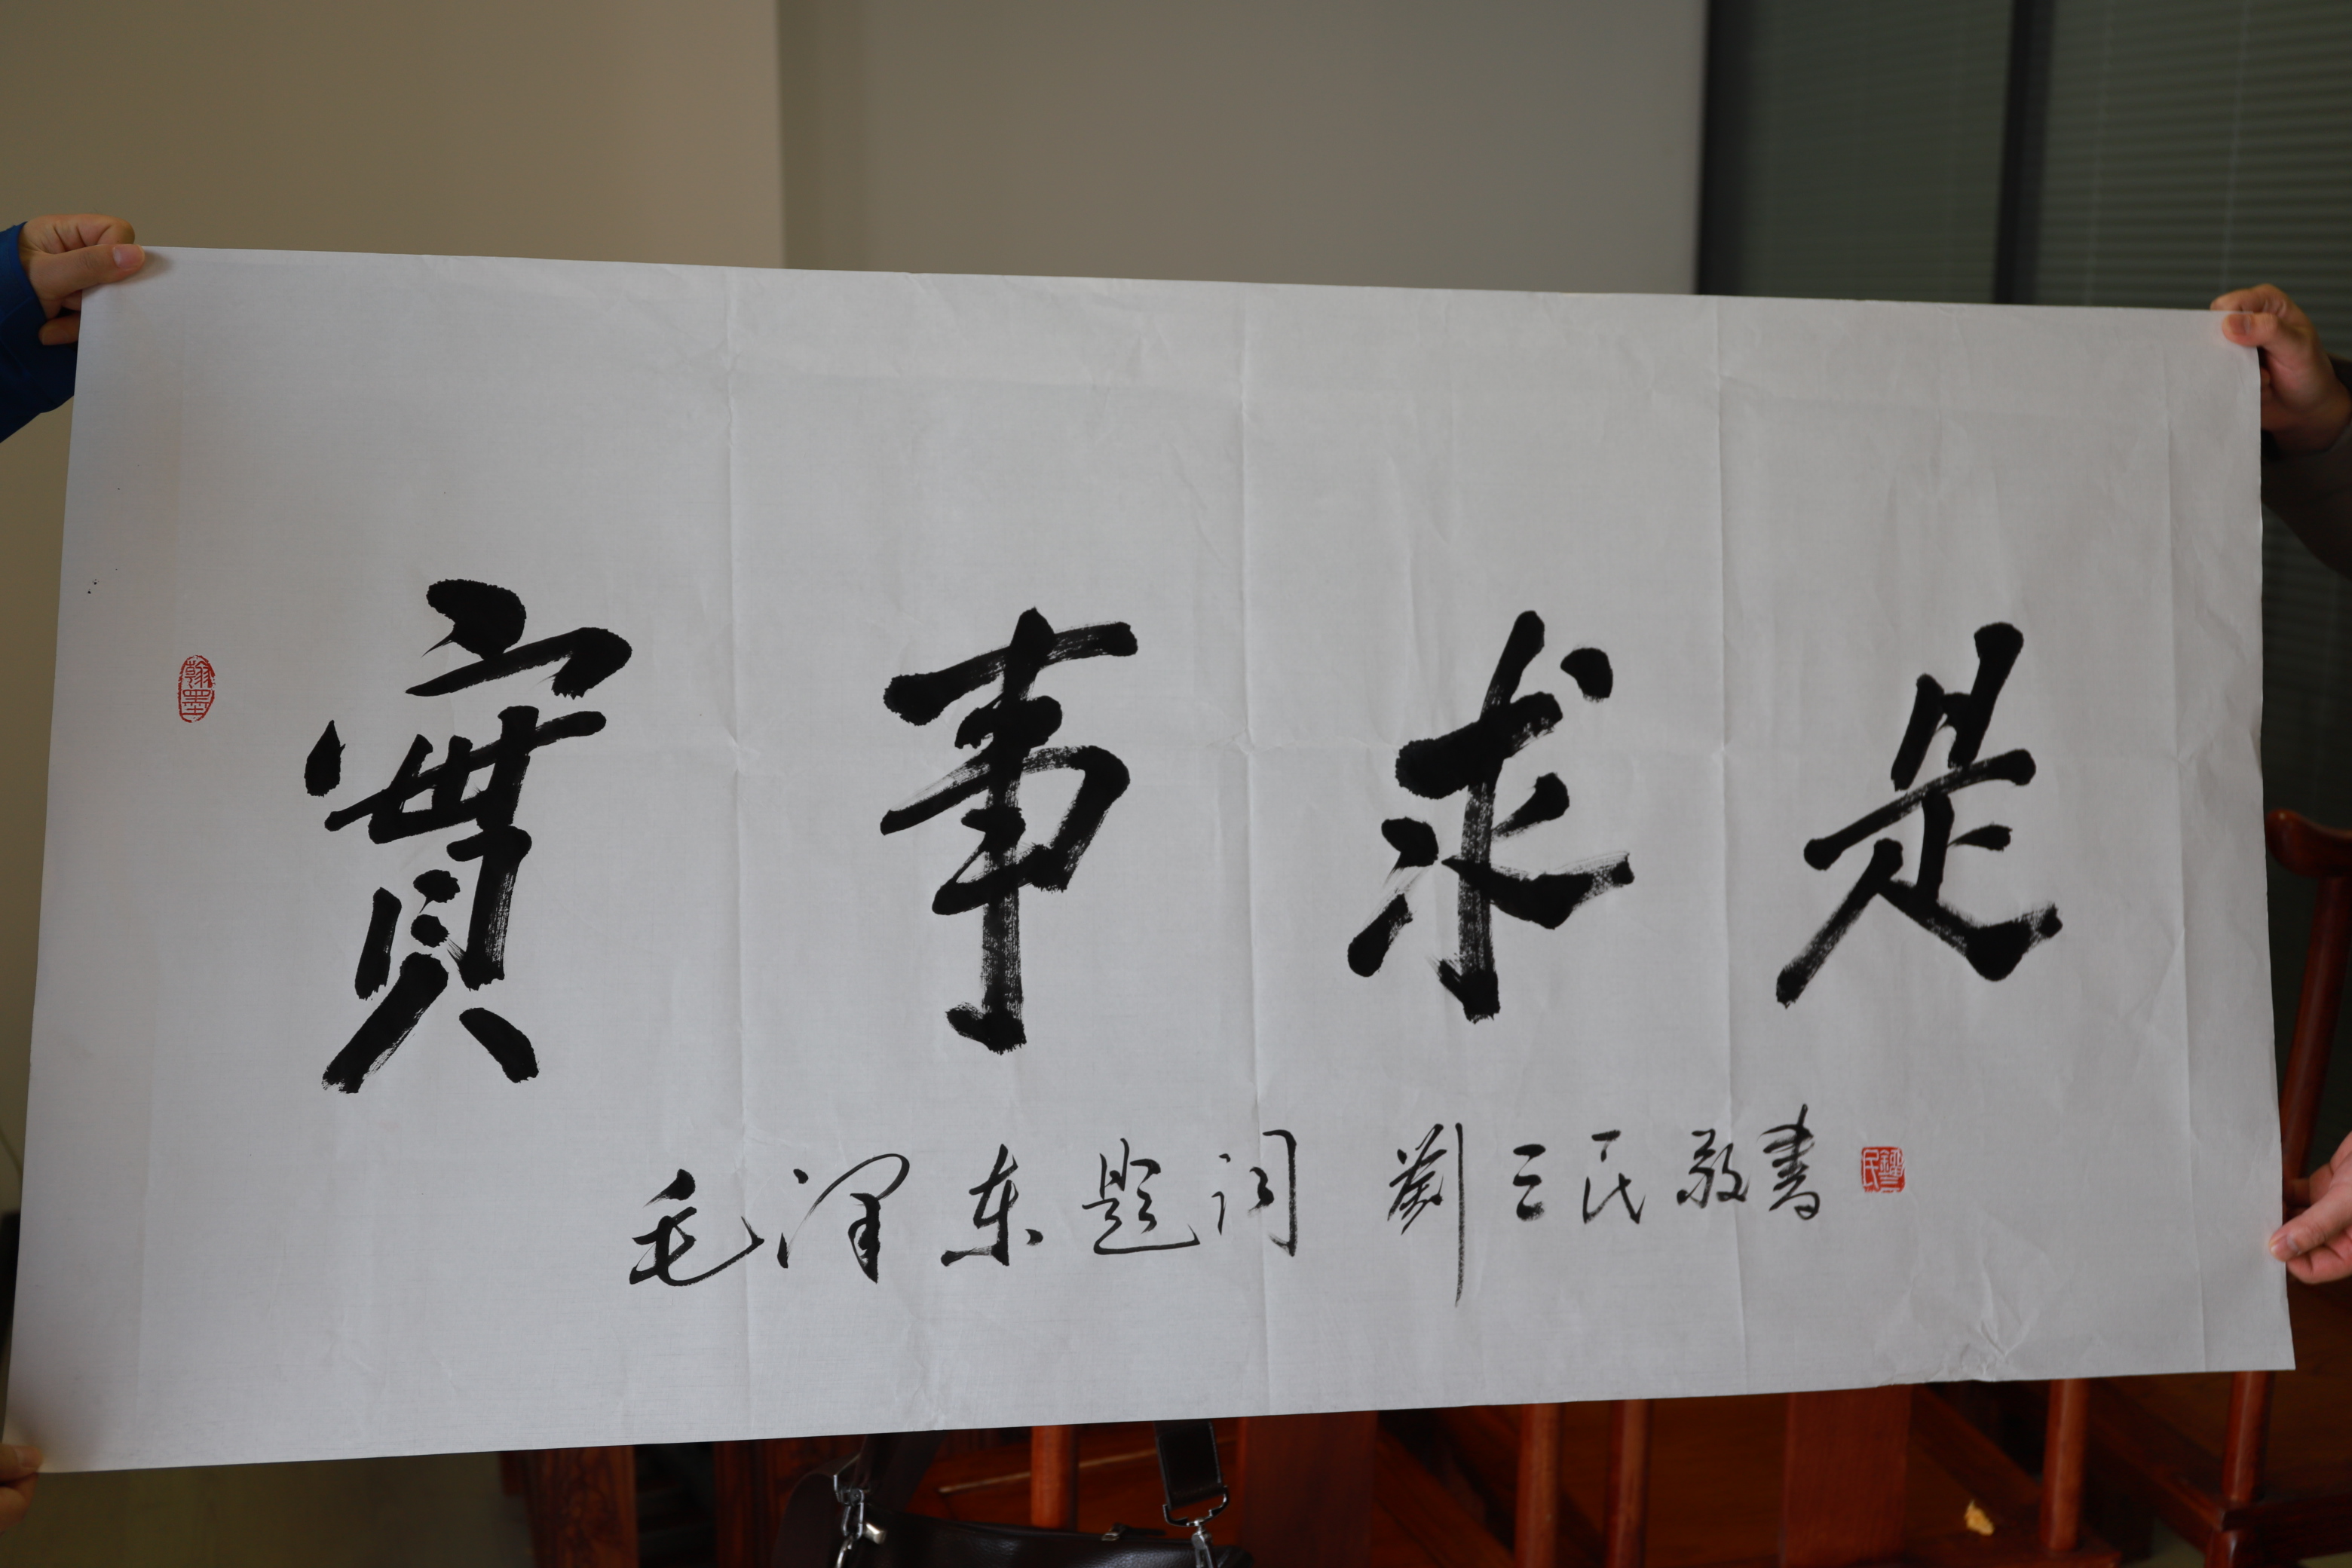 實事求是
毛泽东题词 劉三民敬書
翰墨